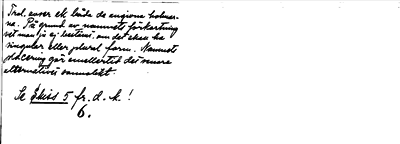 Trol. avser ek. både de angivna holmar-
na. På grund av namnets förkortning
vet man ju ej bestämt, om det skall ha
singular eller plural form. Namnets
placering gör emellertid det senare
alternativet sannolikt.
Se Skiss 5 fr. d. k!
6.